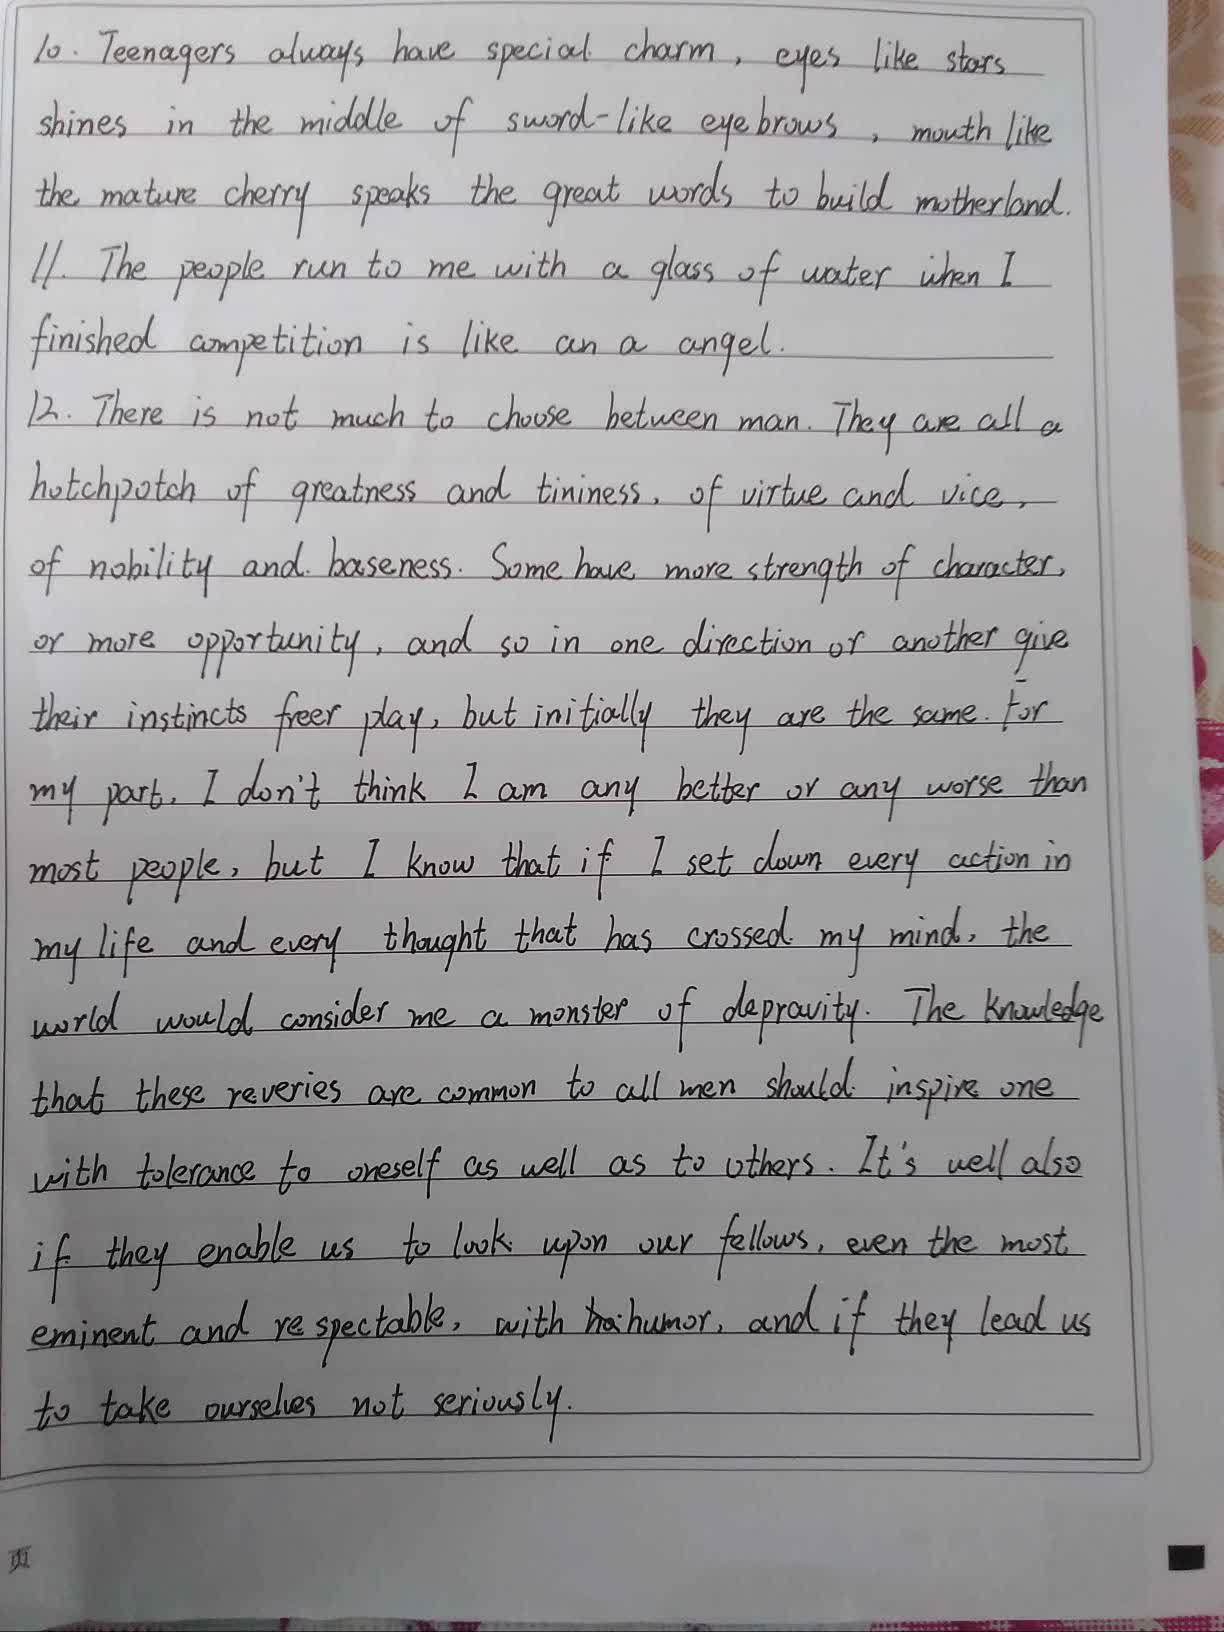 10. Teenagers always have special charm, eyes like stars
shines in the middle of sword-like eyebrows, mouth like
the mature cherry speaks the great words to build motherland.
11. The people run to me with a glass of water when I
finished competition is like an a angel.
12. There is not much to choose between man. They are all a
hotchpotch of greatness and tininess, of virtue and vice,
of nobility and baseness. Some have more strength of character,
or more opportunity, and so in one direction or another give
their instincts freer play, but initially they are the same. For
my part, I don't think I am any better or any worse than
most people, but I know that if I set down every action in
my life and every thought that has crossed my mind, the
world would consider me a monster of depravity. The knowledge
that these reveries are common to all men should inspire one
with tolerance to oneself as well as to others. It's well also
if they enable us to look upon our fellows, even the most
eminent and respectable, with humor, and if they lead us
to take ourselves not seriously.
页